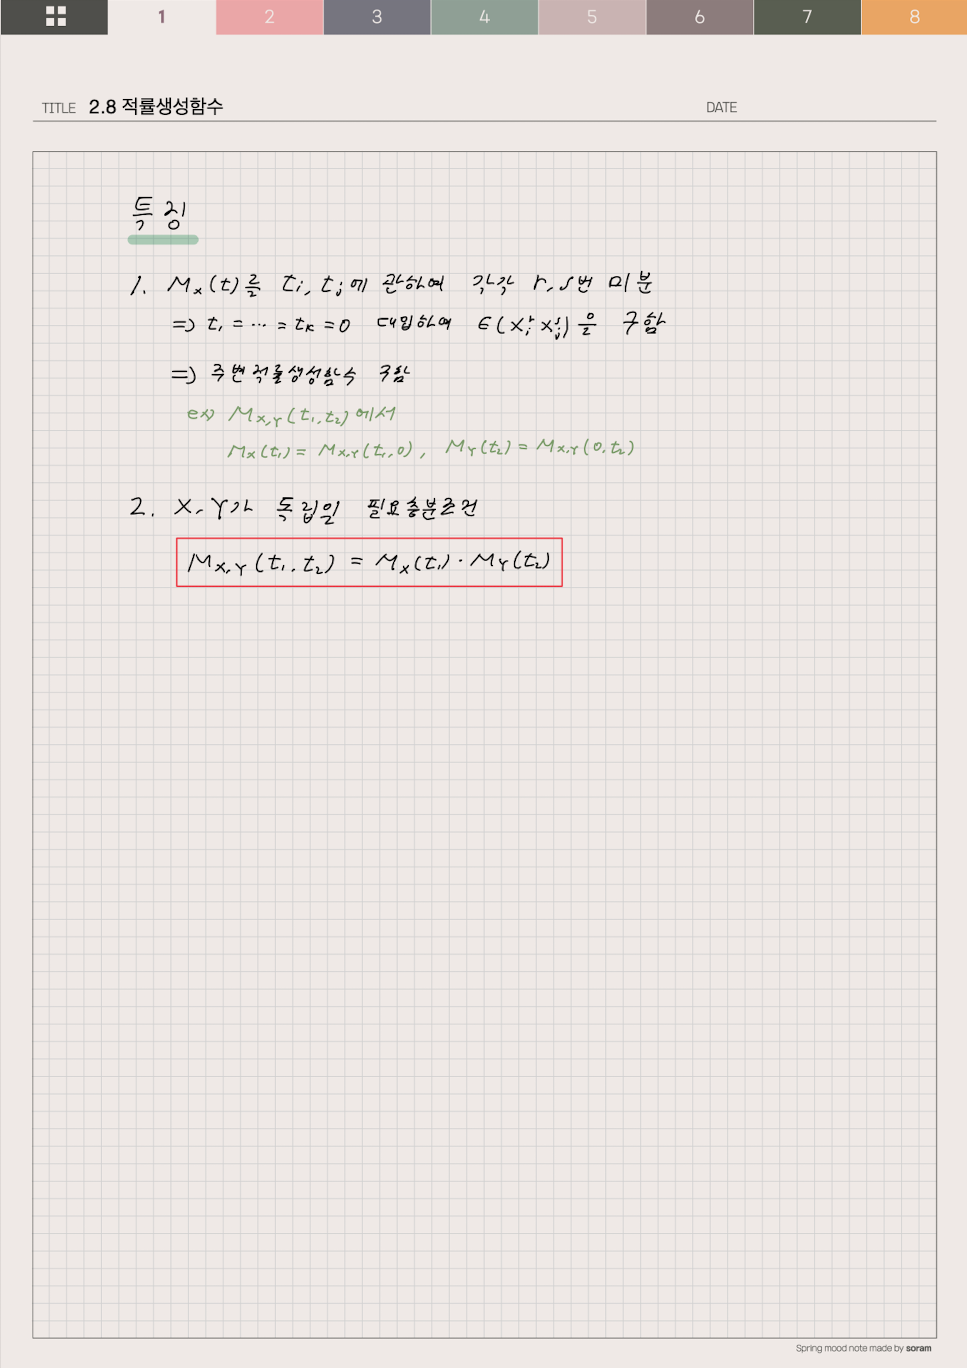 1 2 3 4 5 6 7 8
TITLE 2.8 적률생성함수 DATE
특징
1. Mₓ(t)를 tᵢ, tⱼ에 관하여 각각 r, s번 미분
=> t₁ = ··· = tₖ = 0 대입하여 E(Xᵢʳ Xⱼˢ)을 구함
=> 주변적률생성함수 구함
ex) M_{X,Y}(t₁, t₂)에서
M_X(t₁) = M_{X,Y}(t₁, 0), M_Y(t₂) = M_{X,Y}(0, t₂)
2. X, Y가 독립일 필요충분조건
M_{X,Y}(t₁, t₂) = M_X(t₁) · M_Y(t₂)
Spring mood note made by soram